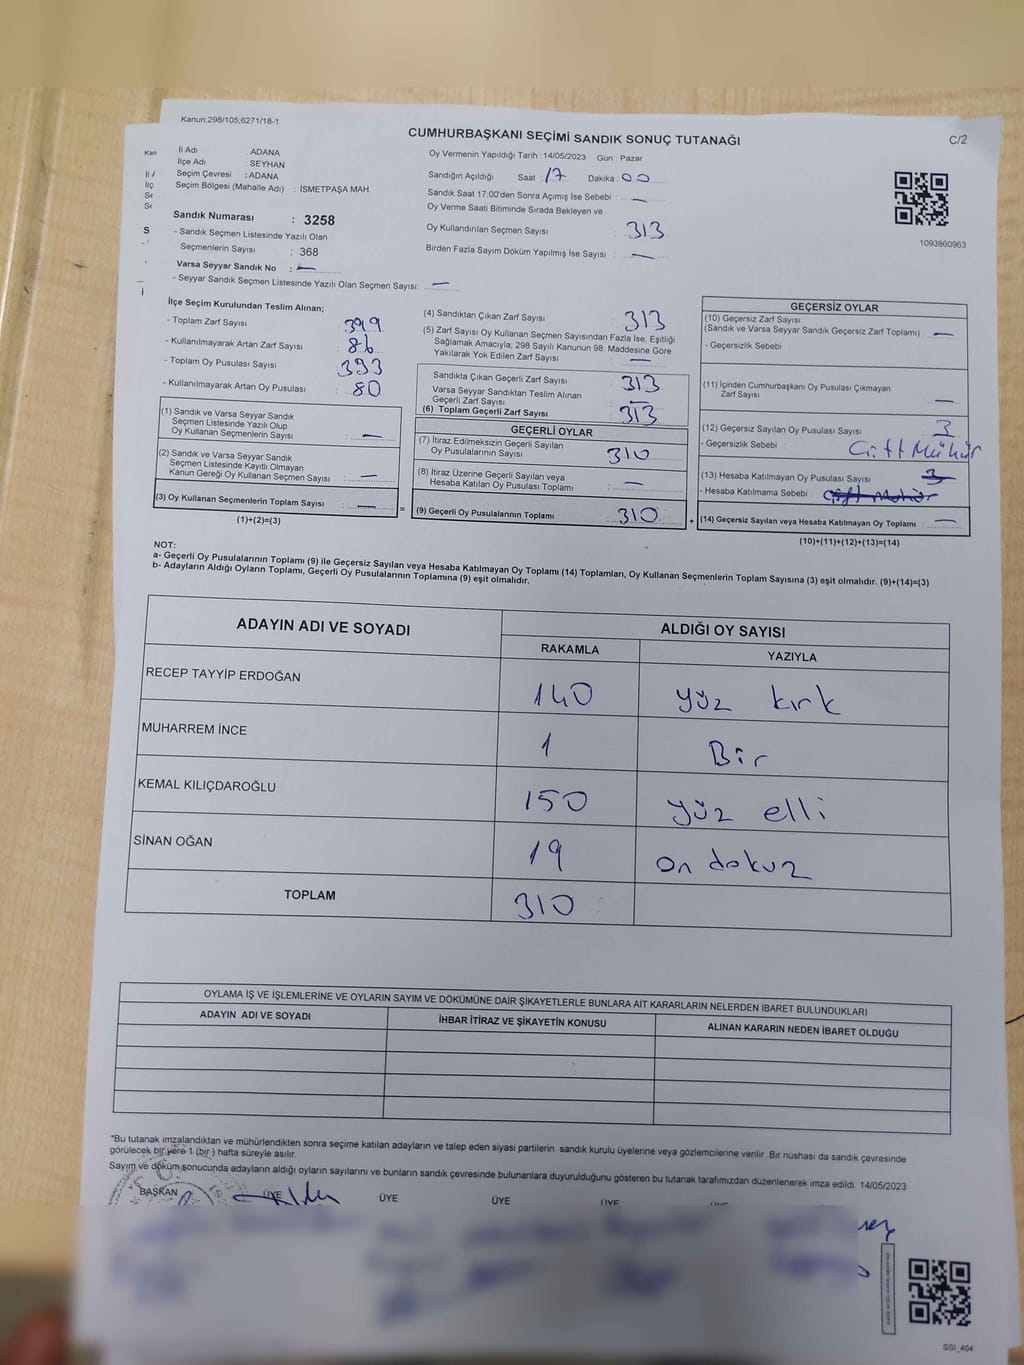 Kanun;298/105;6271/18-1
CUMHURBAŞKANI SEÇİMİ SANDIK SONUÇ TUTANAĞI
C/2
İl Adı : ADANA
İlçe Adı : SEYHAN
Seçim Çevresi : ADANA
Seçim Bölgesi (Mahalle Adı) : İSMETPAŞA MAH.
Sandık Numarası : 3258
- Sandık Seçmen Listesinde Yazılı Olan
Seçmenlerin Sayısı : 368
Varsa Seyyar Sandık No : —
- Seyyar Sandık Seçmen Listesinde Yazılı Olan Seçmen Sayısı: —
Oy Vermenin Yapıldığı Tarih : 14/05/2023 Gün : Pazar
Sandığın Açıldığı Saat : 17 Dakika : 00
Sandık Saat 17:00'den Sonra Açımış İse Sebebi : —
Oy Verme Saati Bitiminde Sırada Bekleyen ve
Oy Kullandırılan Seçmen Sayısı : 313
Birden Fazla Sayım Döküm Yapılmış İse Sayısı : —
1093860963
İlçe Seçim Kurulundan Teslim Alınan;
- Toplam Zarf Sayısı : 399
- Kullanılmayarak Artan Zarf Sayısı : 86
- Toplam Oy Pusulası Sayısı : 393
- Kullanılmayarak Artan Oy Pusulası : 80
(1) Sandık ve Varsa Seyyar Sandık
Seçmen Listesinde Yazılı Olup
Oy Kullanan Seçmenlerin Sayısı : —
(2) Sandık ve Varsa Seyyar Sandık
Seçmen Listesinde Kayıtlı Olmayan
Kanun Gereği Oy Kullanan Seçmen Sayısı : —
(3) Oy Kullanan Seçmenlerin Toplam Sayısı : —
(1)+(2)=(3)
=
(4) Sandıktan Çıkan Zarf Sayısı : 313
(5) Zarf Sayısı Oy Kullanan Seçmen Sayısından Fazla İse, Eşitliği
Sağlamak Amacıyla; 298 Sayılı Kanunun 98. Maddesine Göre
Yakılarak Yok Edilen Zarf Sayısı : —
Sandıkta Çıkan Geçerli Zarf Sayısı : 313
Varsa Seyyar Sandıktan Teslim Alınan
Geçerli Zarf Sayısı : —
(6) Toplam Geçerli Zarf Sayısı : 313
GEÇERLİ OYLAR
(7) İtiraz Edilmeksizin Geçerli Sayılan
Oy Pusulalarının Sayısı : 310
(8) İtiraz Üzerine Geçerli Sayılan veya
Hesaba Katılan Oy Pusulası Toplamı : —
(9) Geçerli Oy Pusulalarının Toplamı : 310
+
GEÇERSİZ OYLAR
(10) Geçersiz Zarf Sayısı
(Sandık ve Varsa Seyyar Sandık Geçersiz Zarf Toplamı) : —
- Geçersizlik Sebebi :
(11) İçinden Cumhurbaşkanı Oy Pusulası Çıkmayan
Zarf Sayısı : —
(12) Geçersiz Sayılan Oy Pusulası Sayısı : 3
- Geçersizlik Sebebi : Çift Mühür
(13) Hesaba Katılmayan Oy Pusulası Sayısı : 3
- Hesaba Katılmama Sebebi : Çift Mühür
(14) Geçersiz Sayılan veya Hesaba Katılmayan Oy Toplamı : —
(10)+(11)+(12)+(13)=(14)
NOT:
a- Geçerli Oy Pusulalarının Toplamı (9) ile Geçersiz Sayılan veya Hesaba Katılmayan Oy Toplamı (14) Toplamları, Oy Kullanan Seçmenlerin Toplam Sayısına (3) eşit olmalıdır. (9)+(14)=(3)
b- Adayların Aldığı Oyların Toplamı, Geçerli Oy Pusulalarının Toplamına (9) eşit olmalıdır.
ADAYIN ADI VE SOYADI
ALDIĞI OY SAYISI
RAKAMLA YAZIYLA
RECEP TAYYİP ERDOĞAN 140 yüz kırk
MUHARREM İNCE 1 Bir
KEMAL KILIÇDAROĞLU 150 yüz elli
SİNAN OĞAN 19 on dokuz
TOPLAM 310
OYLAMA İŞ VE İŞLEMLERİNE VE OYLARIN SAYIM VE DÖKÜMÜNE DAİR ŞİKAYETLERLE BUNLARA AİT KARARLARIN NELERDEN İBARET BULUNDUKLARI
ADAYIN ADI VE SOYADI İHBAR İTİRAZ VE ŞİKAYETİN KONUSU ALINAN KARARIN NEDEN İBARET OLDUĞU
*Bu tutanak imzalandıktan ve mühürlendikten sonra seçime katılan adayların ve talep eden siyasi partilerin sandık kurulu üyelerine veya gözlemcilerine verilir. Bir nüshası da sandık çevresinde
görülecek bir yere 1 (bir) hafta süreyle asılır.
Sayım ve döküm sonucunda adayların aldığı oyların sayılarını ve bunların sandık çevresinde bulunanlara duyurulduğunu gösteren bu tutanak tarafımızdan düzenlenerek imza edildi. 14/05/2023
BAŞKAN ÜYE ÜYE ÜYE ÜYE ÜYE
SSİ_404